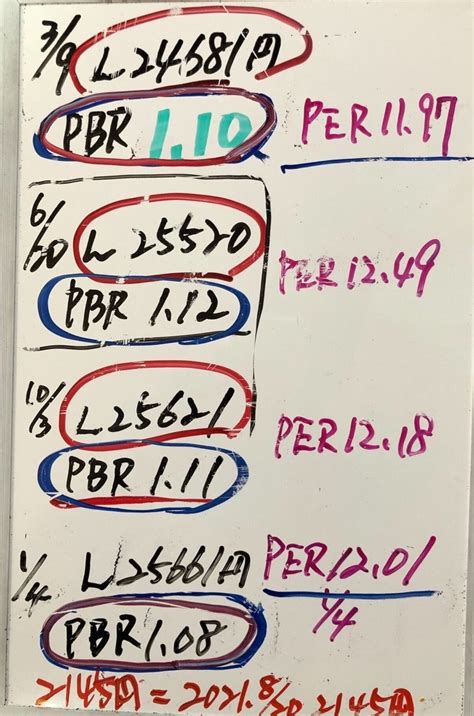 3/9 L24681円
PBR 1.10 PER 11.97
6/20 L 25520
PBR 1.12 PER 12.49
10/3 L25621
PBR 1.11 PER 12.18
1/4 L25661円 PER 12.01
PBR 1.08 1/4
2145円=2021.8/20 2145円